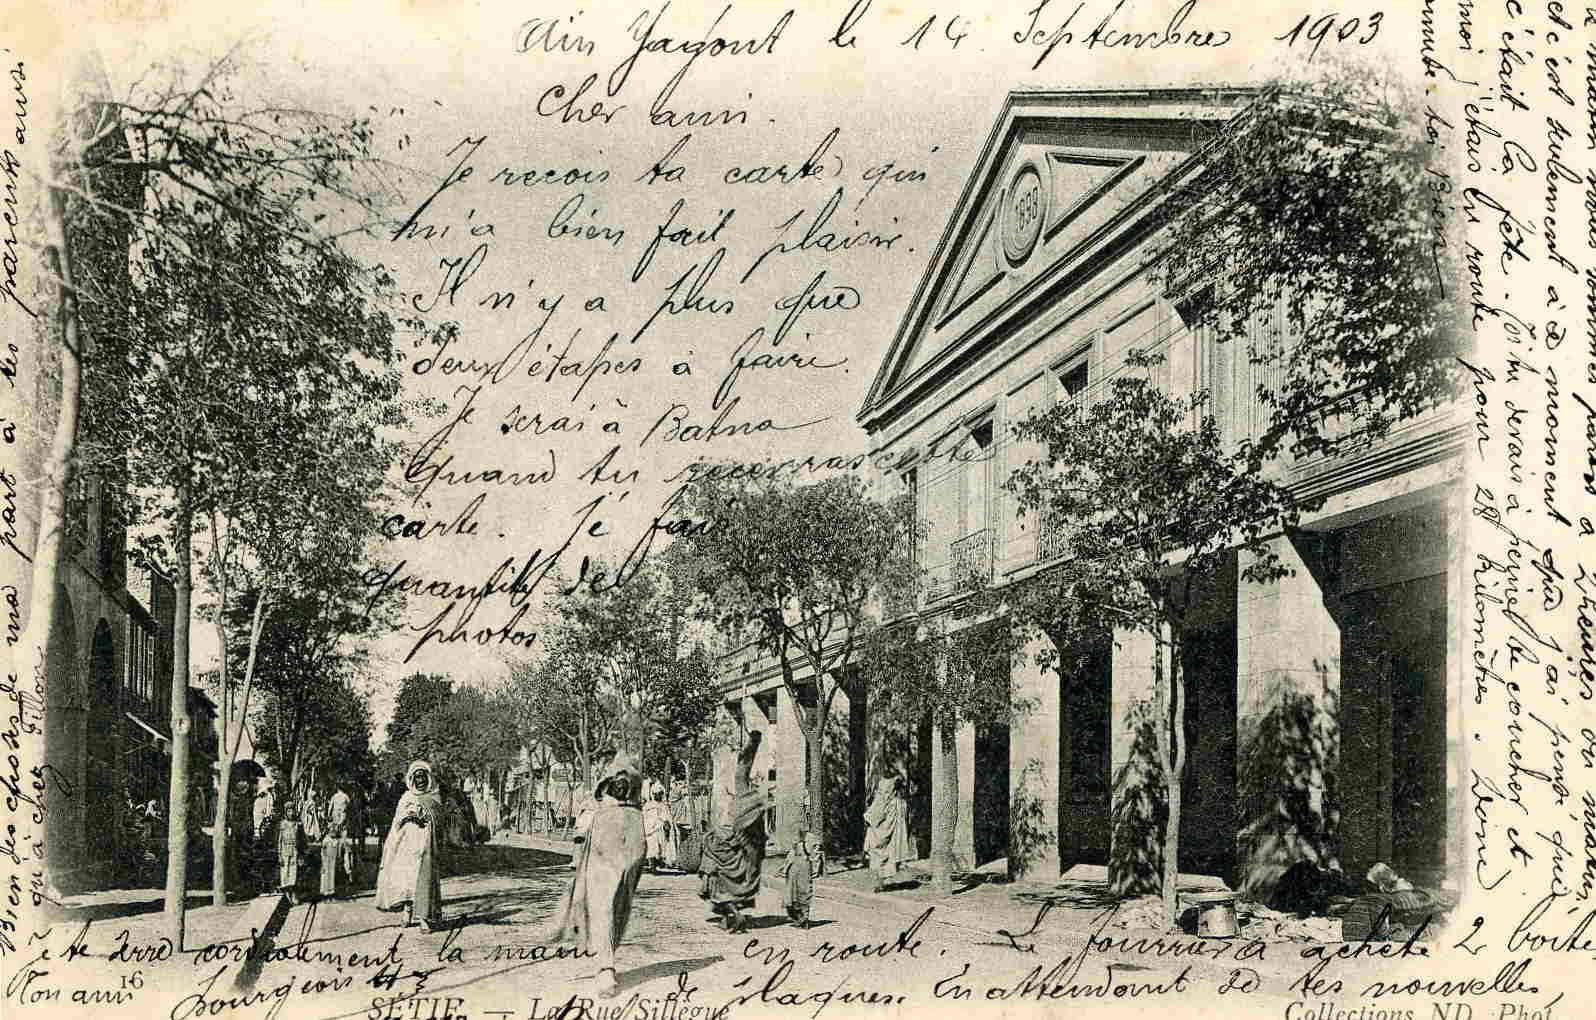 Ain Yagout le 14 Septembre 1903
Cher ami.
Je recois ta carte qui
m'a bien fait plaisir.
Il n'y a plus que
deux étapes à faire.
Je serai à Batna
quand tu recevras cette
carte. Je fais
quantité de
photos
en route. Le fourrier à acheté 2 boîtes
de plaques. En attendant de tes nouvelles,
je te serre cordialement la main
Ton ami
Bourgeois
Bien des choses de ma part à tes parents ainsi
qu'à chez Gillon
ce matin nous sommes
et c'est seulement à ce moment que j'ai pensé que
c'était ta fête. Toi tu devais à peine te coucher et
moi j'étais en route pour 28 kilomètres. Donne
Bien
1898
16 SÉTIF — La Rue Sillègue
Collections ND. Phot.